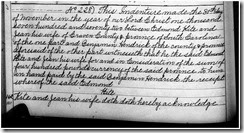 No 228) This Indenture made the 30th day
of November in the year of our Lord Christ one thousand
seven hundred and seventy two between Edmund Kite and
jean his wife of Craven County & province of South Carolina
of the one part and Benjamin Kendrick of the county & province
aforesaid of the other part witnesseth that he the said Edmund
Kite and jean his wife for and in Consideration of the sum of
four hundred pounds currency of the said province to him
in hand paid by the said Benjamin Kendrick the receipt
whereof the said Edmund
Kite
Kite and jean his wife doth doth hereby acknowledge